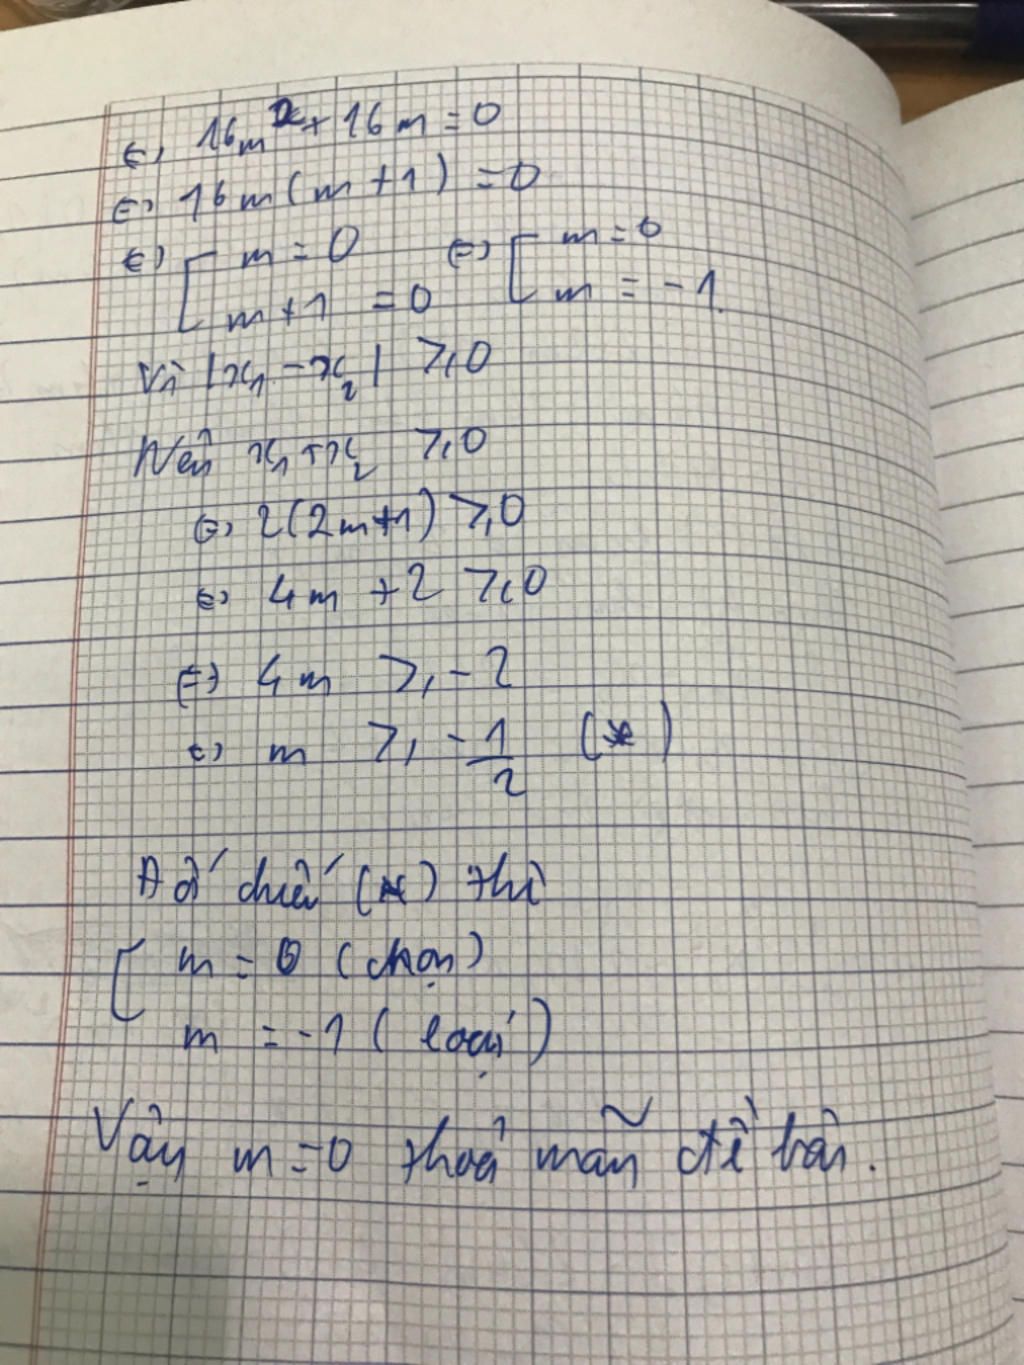 ⇔ 16m² + 16m = 0
⇔ 16m(m+1) = 0
⇔ [ m = 0 ⇔ [ m = 0
m+1 = 0 m = -1.
Vì |x₁ - x₂| ≥ 0
Nên x₁ + x₂ ≥ 0
⇔ 2(2m+1) ≥ 0
⇔ 4m + 2 ≥ 0
⇔ 4m ≥ -2
⇔ m ≥ -1/2 (*)
Đối chiếu (*) thì
[ m = 0 (chọn)
m = -1 (loại)
Vậy m = 0 thoả mãn đề bài.